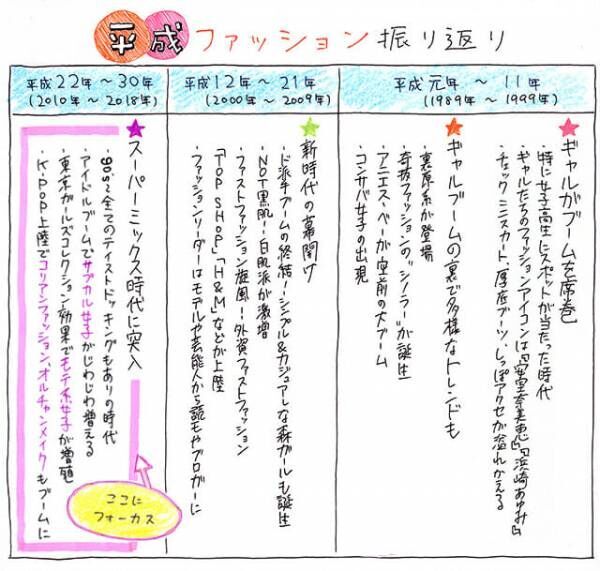 平成ファッション振り返り
平成元年～11年
(1989年～1999年)
★ギャルがブームを席巻
・特に女子高生にスポットが当たった時代
・ギャルたちのファッションアイコンは『安室奈美恵』『浜崎あゆみ』
・チェックミニスカート、厚底ブーツ、しっぽアクセが溢れかえる
★ギャルブームの裏で多様なトレンドも
・裏原系が登場
・奇抜ファッションの"シノラー"が誕生
・アニエス・ベーが空前の大ブーム
・コンサバ女子の出現
平成12年～21年
(2000年～2009年)
★新時代の幕開け
・ド派手ブームの終結!シンプル&カジュアルな森ガールも誕生
・NOT黒肌!白肌派が激増
・ファストファッション旋風!外資ファストファッション
「TOP SHOP」「H&M」などが上陸
・ファッションリーダーはモデルや芸能人から読モやブロガーに
平成22年～30年
(2010年～2018年)
★スーパーミックス時代に突入
・90's～全てのテイストドッキングもありの時代
・アイドルブームでサブカル女子がじわじわ増える
・東京ガールズコレクション効果でモテ系女子が増殖
・K-POP上陸でコリアンファッション、オルチャンメイクもブームに
ここに
フォーカス